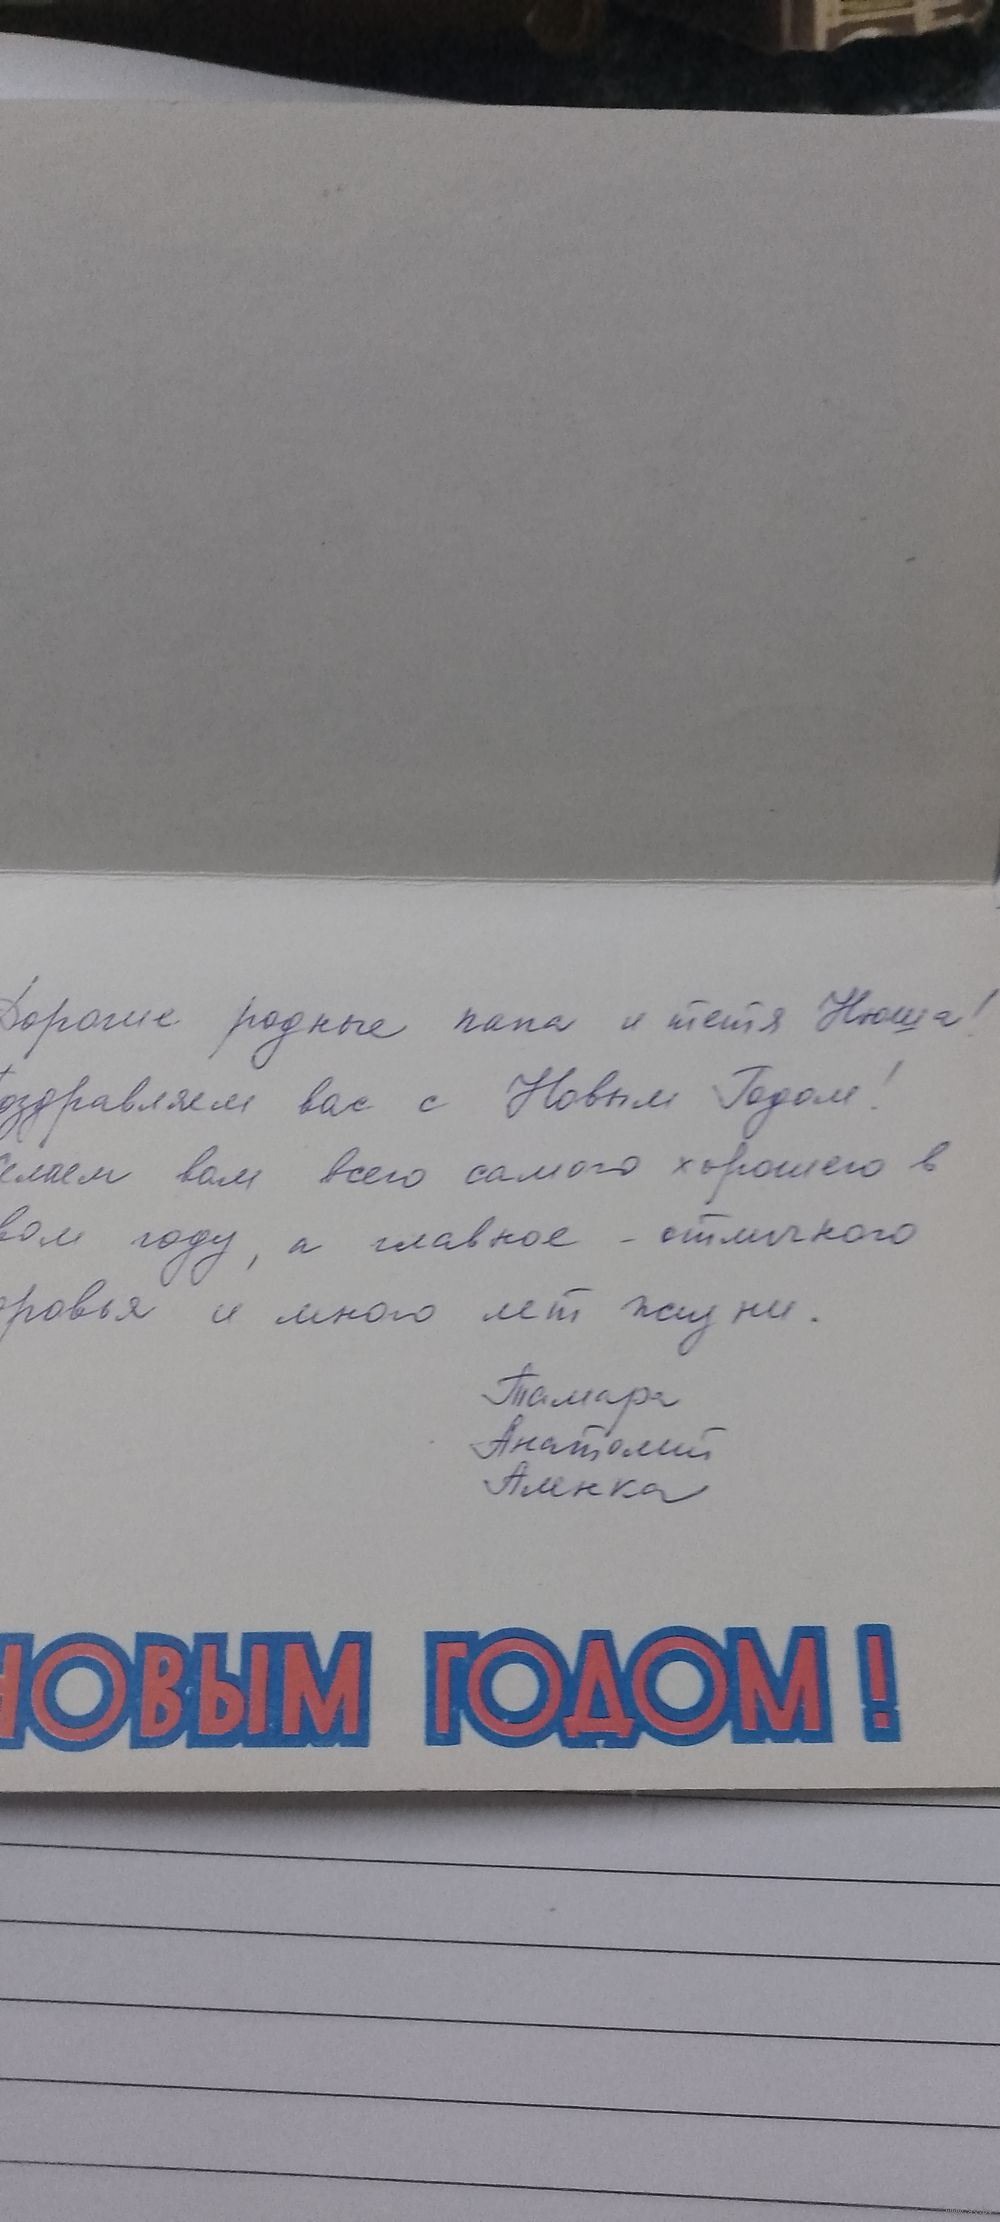 Дорогие родные папа и тетя Нюша!
Поздравляем вас с Новым Годом!
елаем вам всего самого хорошего в
вом году, а главное - отличного
оровья и много лет жизни.
Тамара
Анатолий
Аленка
НОВЫМ ГОДОМ!